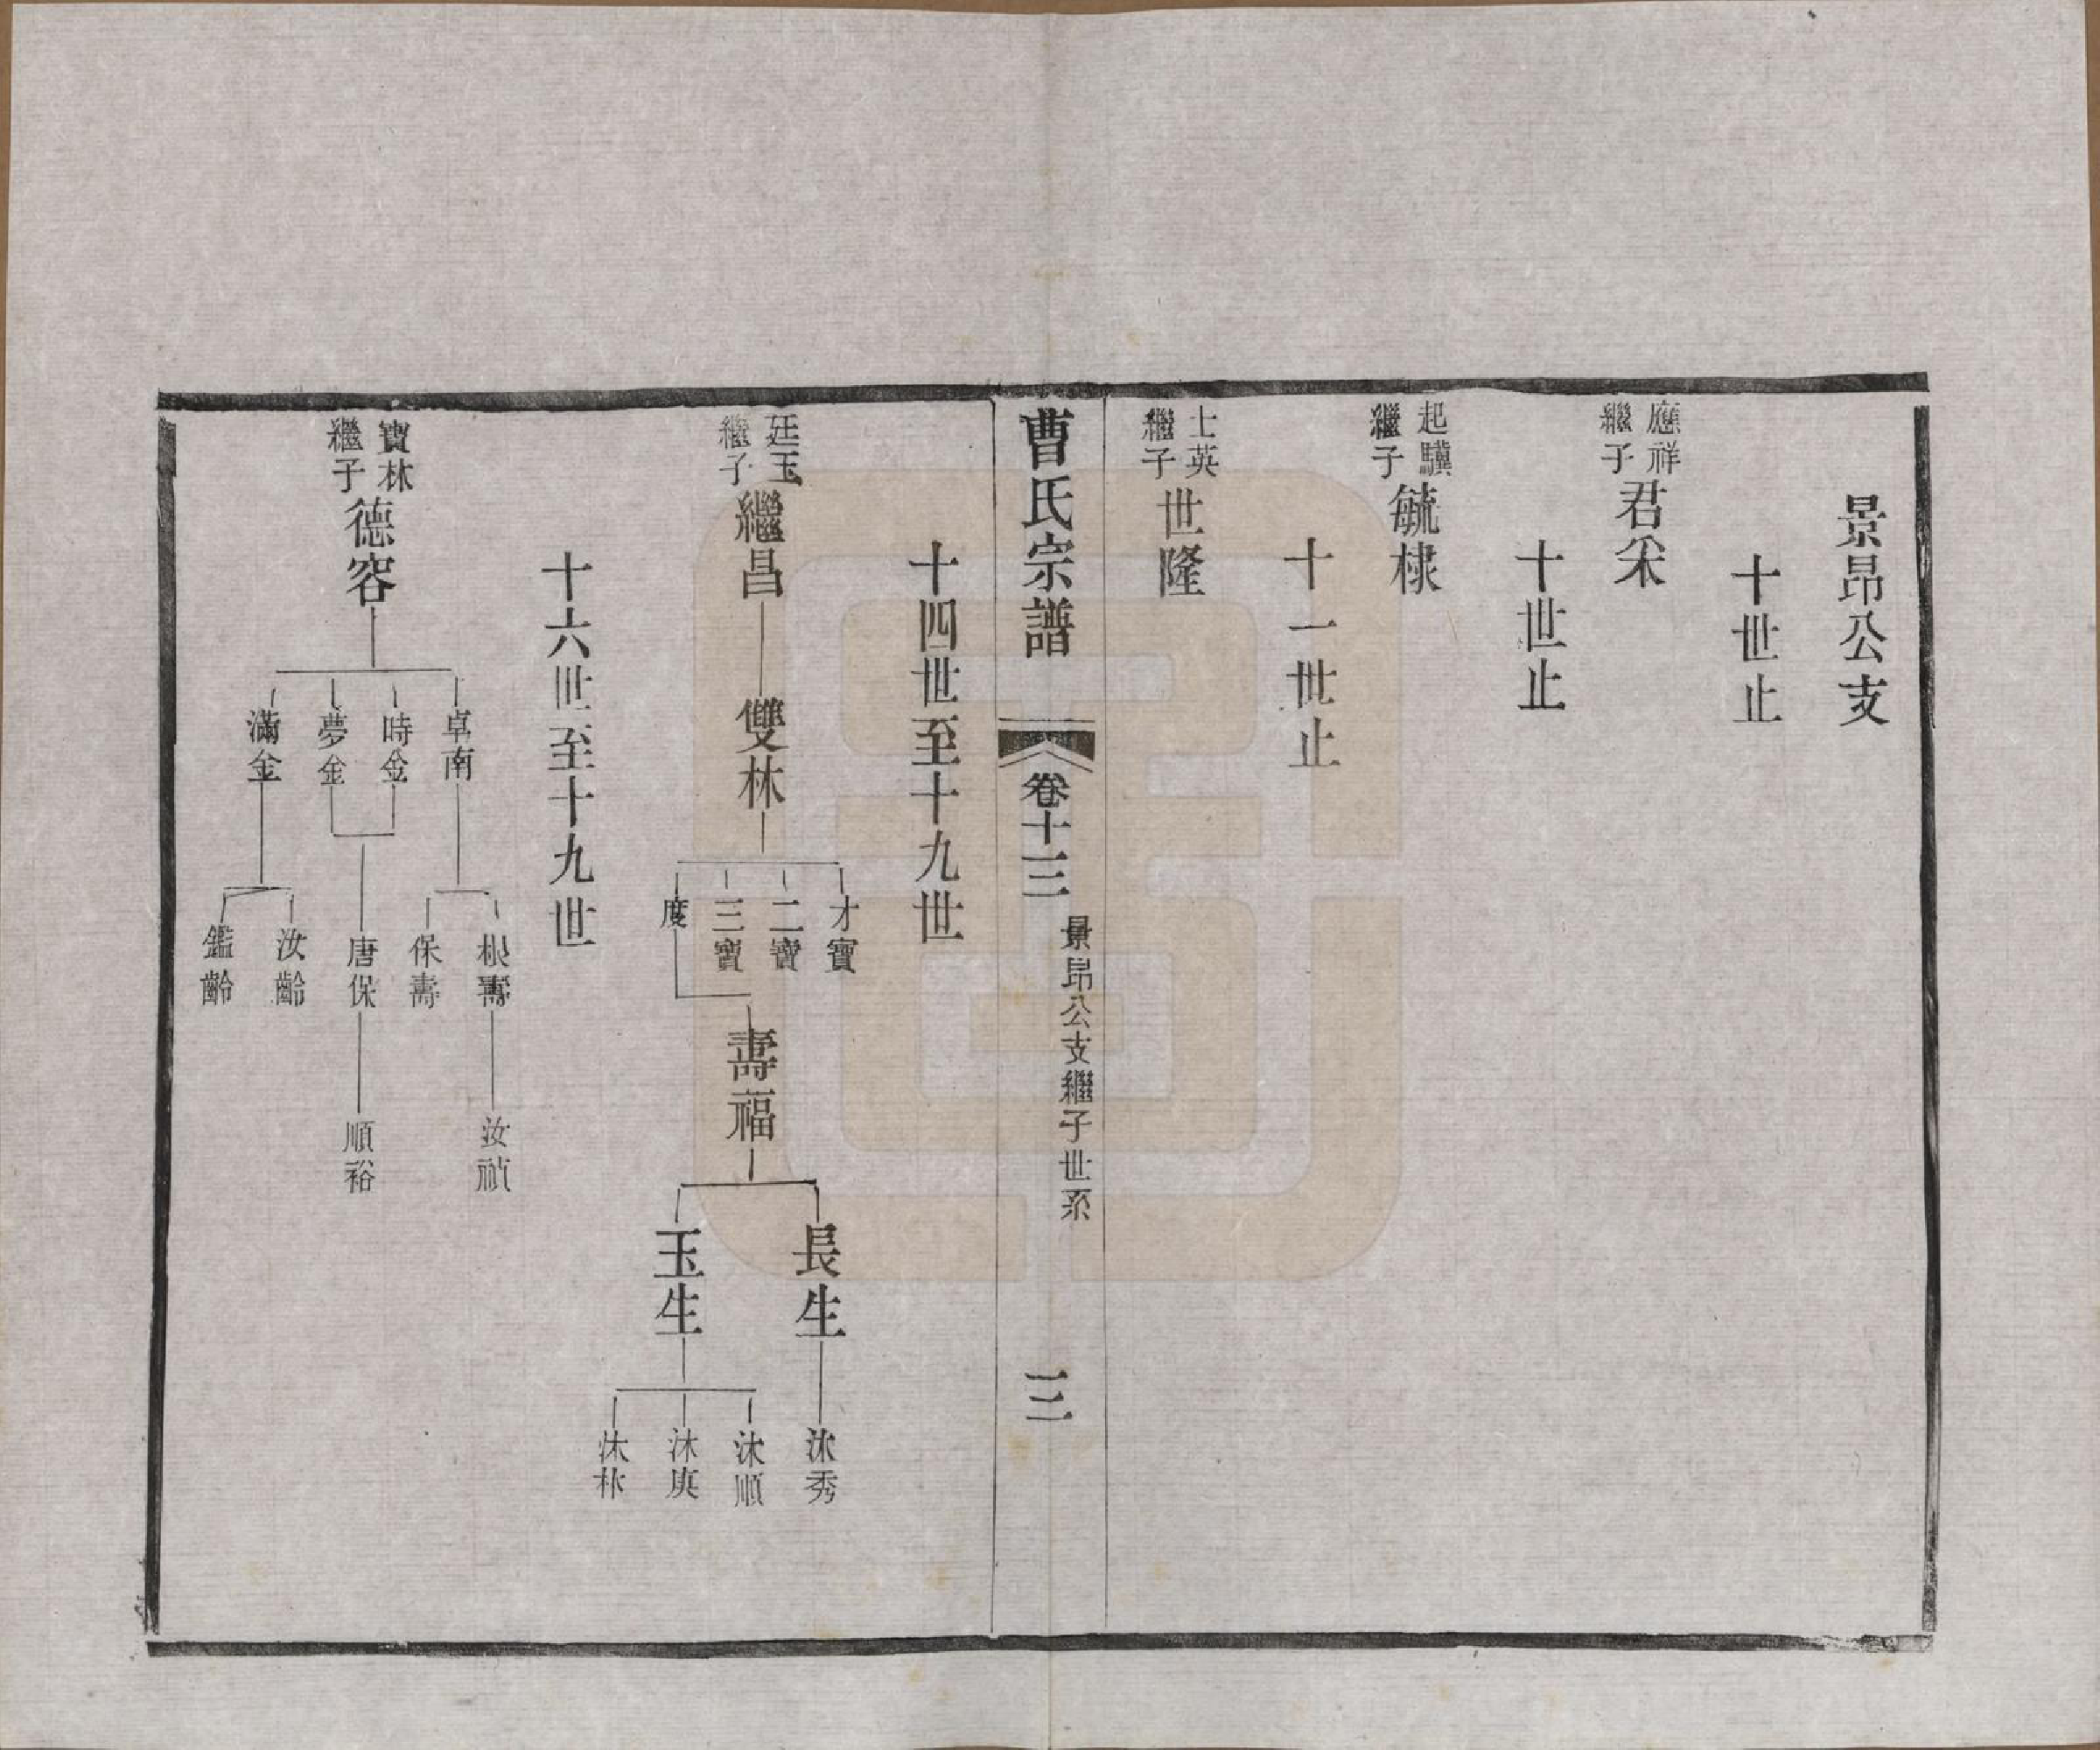 景昂公支
十世止
應祥繼子
君釆
十世止
起驥繼子
毓棣
十一世止
士英繼子
世隆
曹氏宗譜
卷十三
景昂公支繼子世系
三
十四世至十九世
廷玉繼子
繼昌
雙林
才寶
二寶
三寶
度
壽福
長生
玉生
沐秀
沐順
沐庚
沐林
十六世至十九世
寶林繼子
德容
卓南
時金
夢金
滿金
根壽
保壽
唐保
汝齡
鑑齡
汝禎
順裕